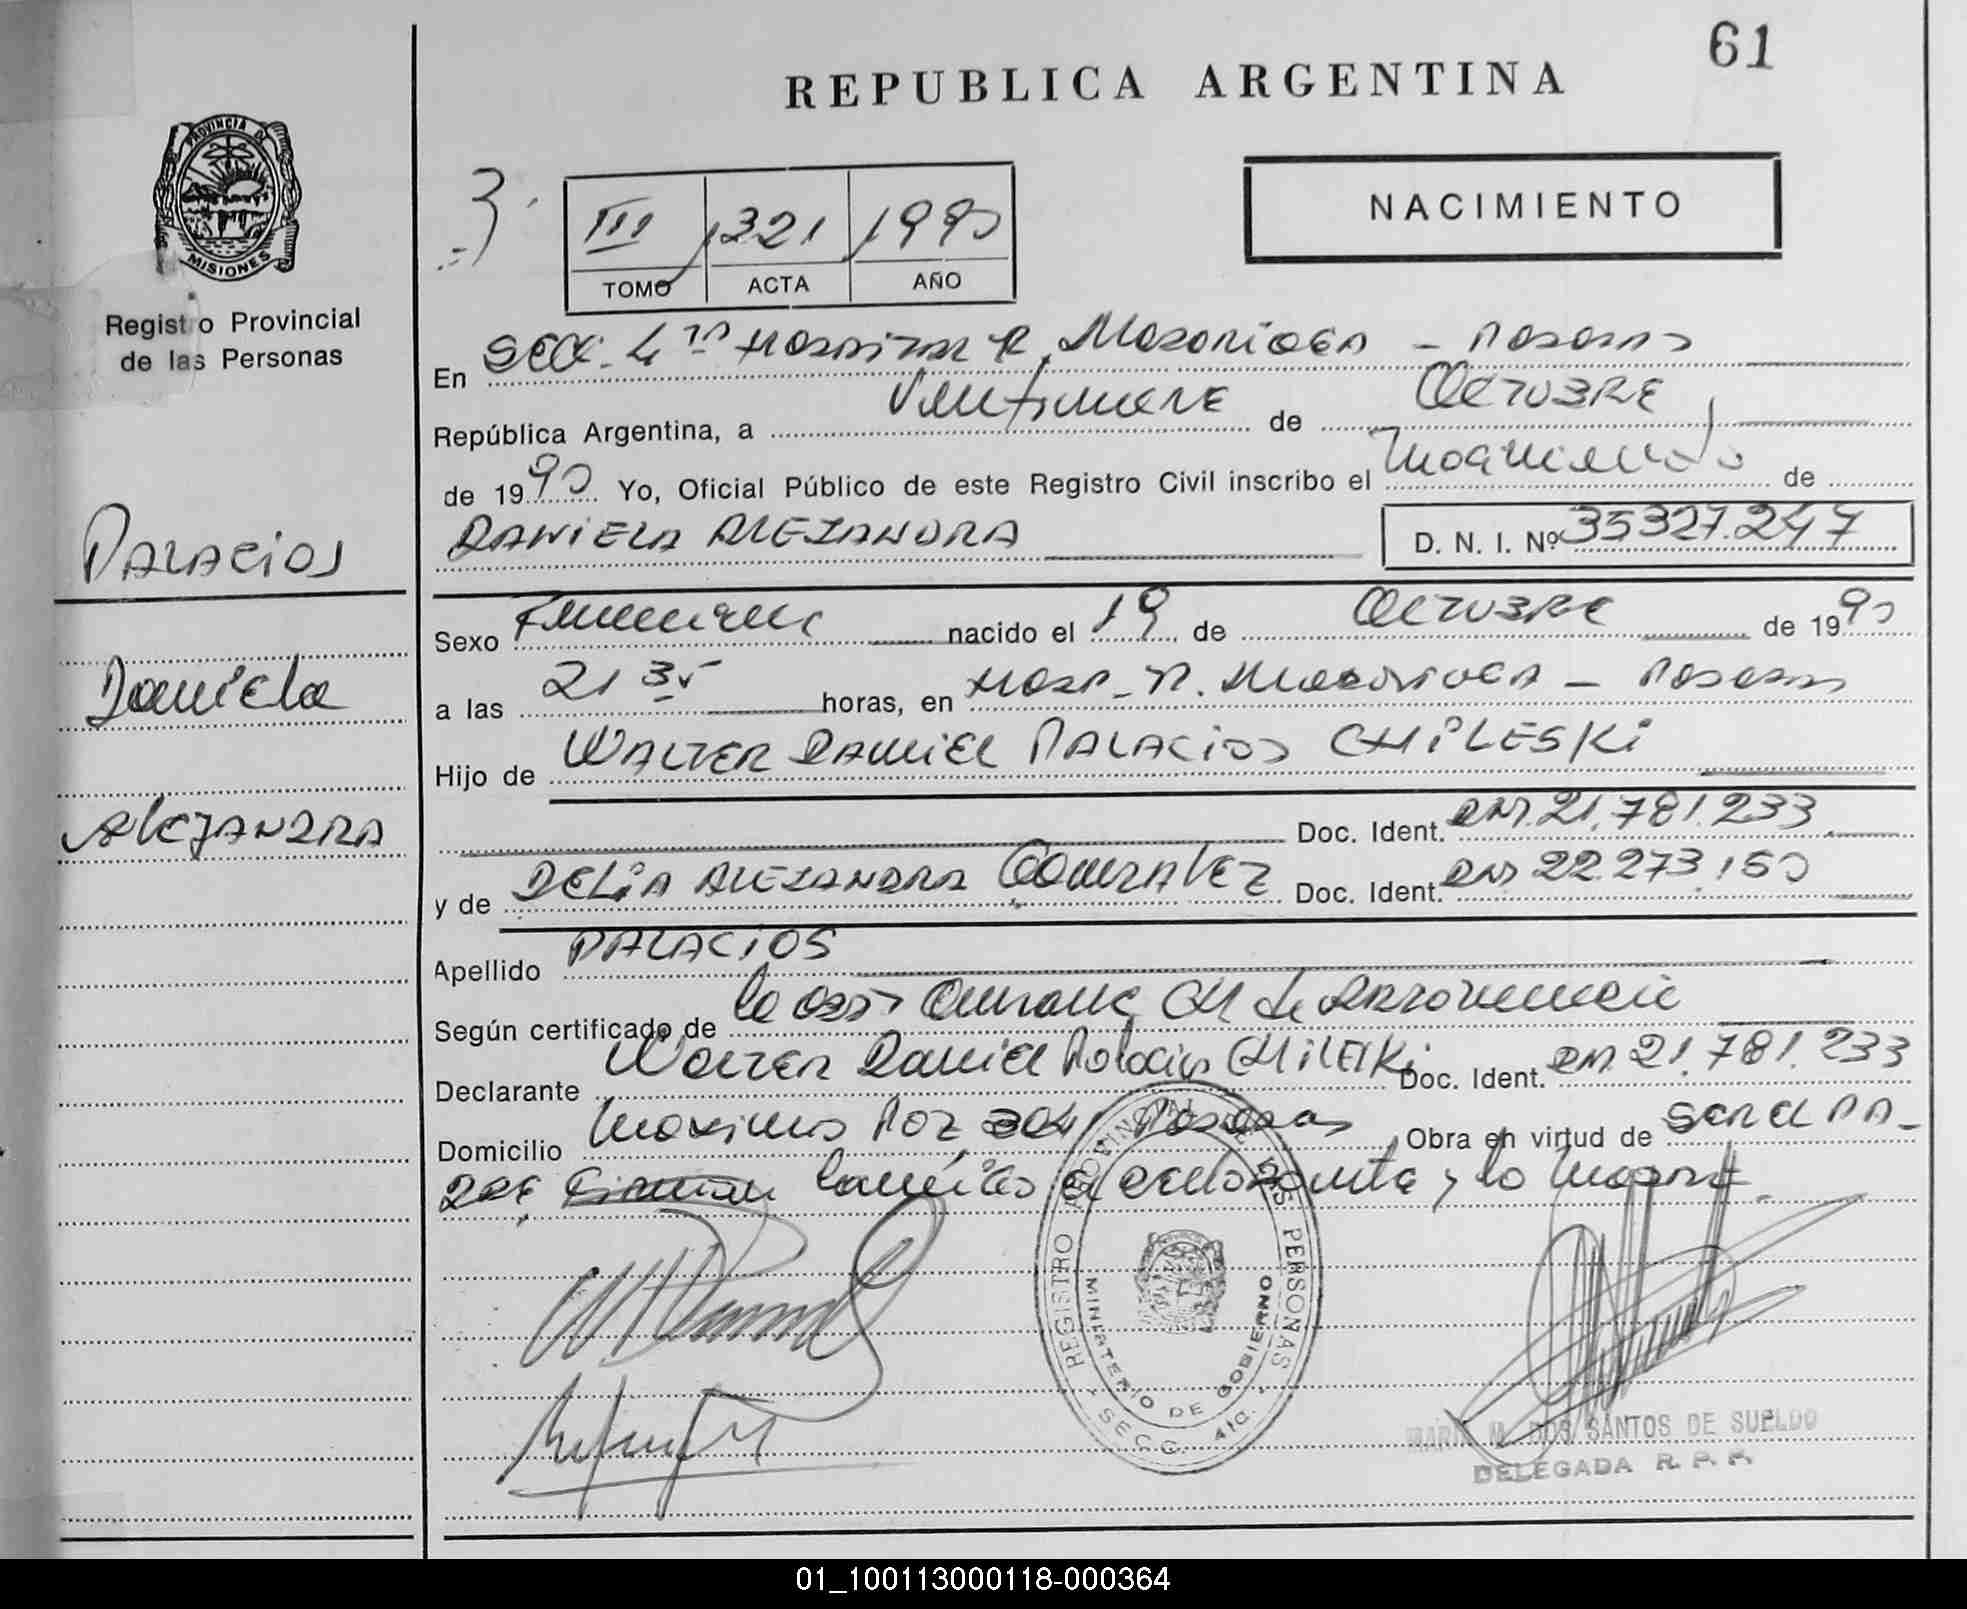 61
REPUBLICA ARGENTINA
PROVINCIA DE
MISIONES
Registro Provincial
de las Personas
III 1321 1990
TOMO ACTA AÑO
NACIMIENTO
En Secc. 4ta Hospital R. Madariaga - Posadas
República Argentina, a Veintinueve de Octubre
de 1990 Yo, Oficial Público de este Registro Civil inscribo el Nacimiento de
DANIELA ALEJANDRA D. N. I. Nº 35327.247
PALACIOS
Daniela
ALEJANDRA
Sexo Femenino nacido el 19 de OCTUBRE de 1990
a las 21 35 horas, en Hosp. R. Madariaga - Posadas
Hijo de WALTER DANIEL PALACIOS CHILESKI
Doc. Ident. DNI 21.781.233
y de DELIA ALEJANDRA GONZALEZ Doc. Ident. DNI 22.273.150
Apellido PALACIOS
Según certificado de la
Declarante Walter Daniel Palacios CHILESKI Doc. Ident. DNI 21.781.233
Domicilio Maximo Paz Posadas Obra en virtud de ser el PA-
DRE y la Madre.
REGISTRO PROVINCIAL DE LAS PERSONAS
MINISTERIO DE GOBIERNO
SECC. 4ta.
MARIA M. DOS SANTOS DE SUELDO
DELEGADA R. P. P.
01_100113000118-000364